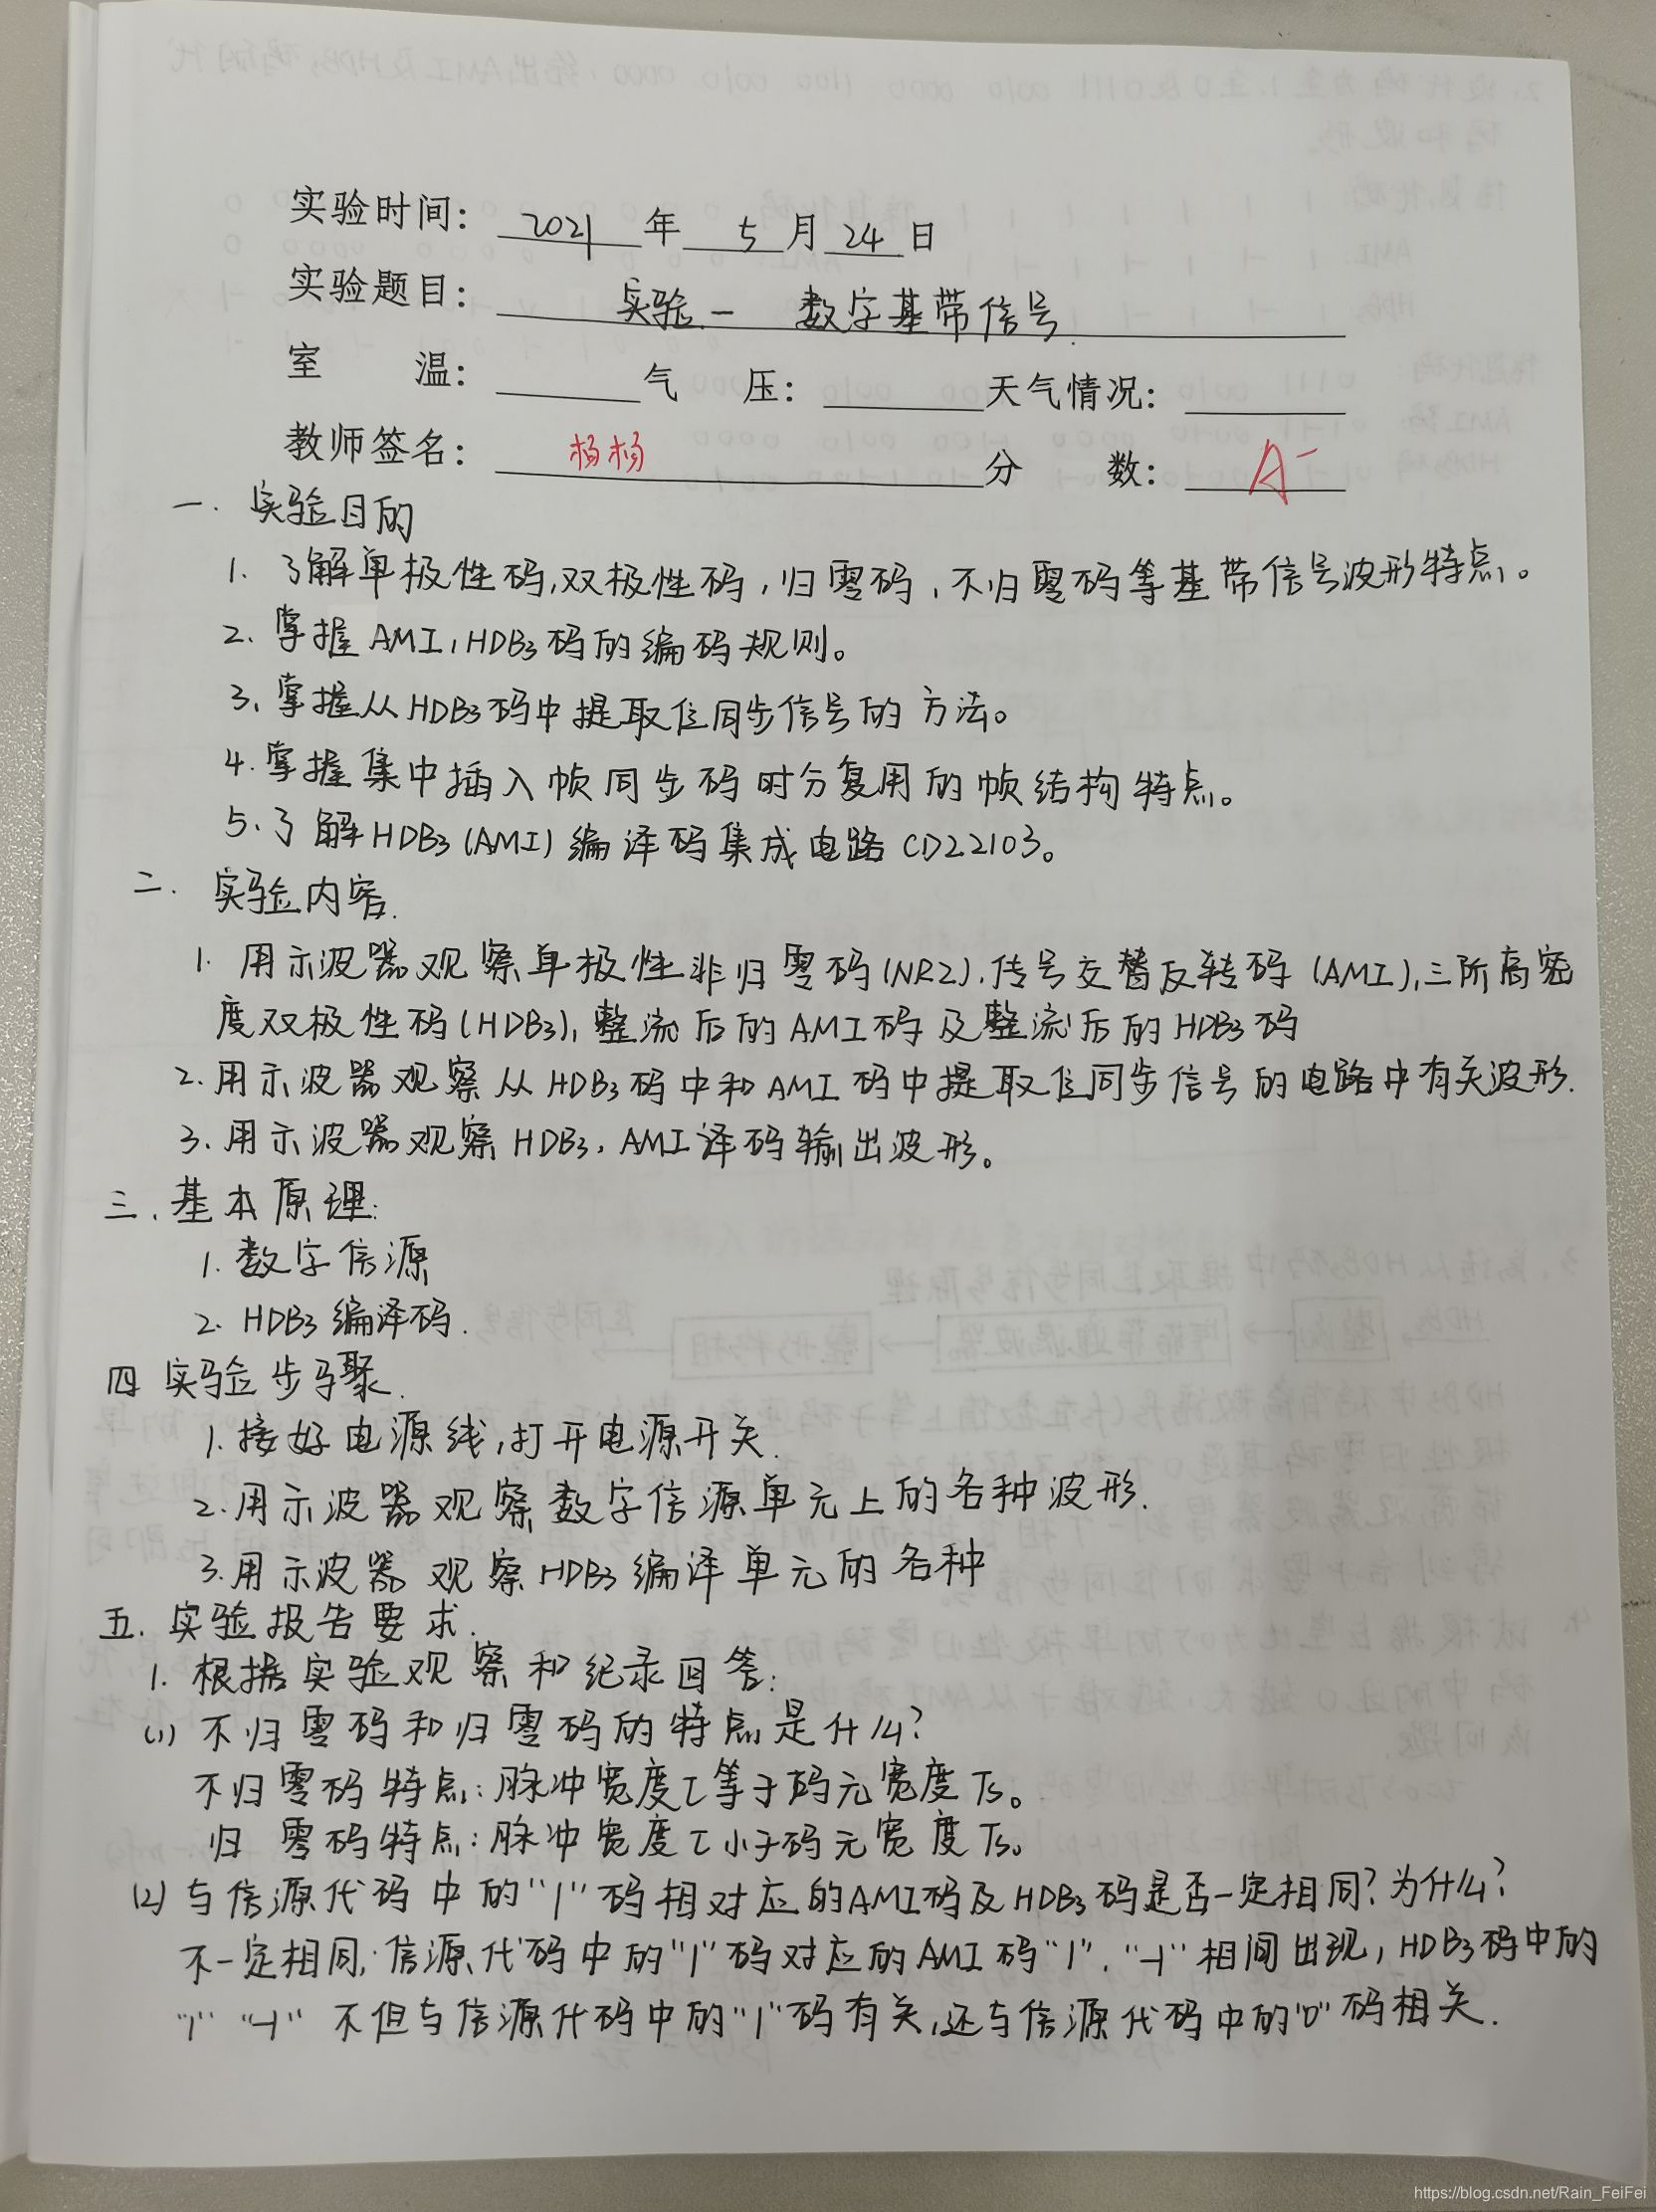 实验时间: 2021 年 5 月 24 日
实验题目: 实验一 数字基带信号
室 温: 气 压: 天气情况:
教师签名: 杨杨 分 数: A-
一. 实验目的
1. 了解单极性码,双极性码,归零码,不归零码等基带信号波形特点。
2. 掌握AMI,HDB3码的编码规则。
3. 掌握从HDB3码中提取位同步信号的方法。
4. 掌握集中插入帧同步码时分复用的帧结构特点。
5. 了解HDB3(AMI)编译码集成电路CD22103。
二. 实验内容.
1. 用示波器观察单极性非归零码(NRZ).传号交替反转码(AMI),三阶高密
度双极性码(HDB3),整流后的AMI码及整流后的HDB3码
2. 用示波器观察从HDB3码中和AMI码中提取位同步信号的电路中有关波形.
3. 用示波器观察HDB3,AMI译码输出波形。
三. 基本原理:
1. 数字信源
2. HDB3编译码.
四 实验步骤.
1. 接好电源线,打开电源开关.
2. 用示波器观察数字信源单元上的各种波形.
3. 用示波器观察HDB3编译单元的各种
五. 实验报告要求.
1. 根据实验观察和纪录回答:
(1) 不归零码和归零码的特点是什么?
不归零码特点:脉冲宽度τ等于码元宽度Ts。
归零码特点:脉冲宽度τ小于码元宽度Ts。
(2) 与信源代码中的"1"码相对应的AMI码及HDB3码是否一定相同?为什么?
不一定相同;信源代码中的"1"码对应的AMI码"1"."-1"相间出现,HDB3码中的
"1" "-1" 不但与信源代码中的"1"码有关,还与信源代码中的"0"码相关.
https://blog.csdn.net/Rain_FeiFei